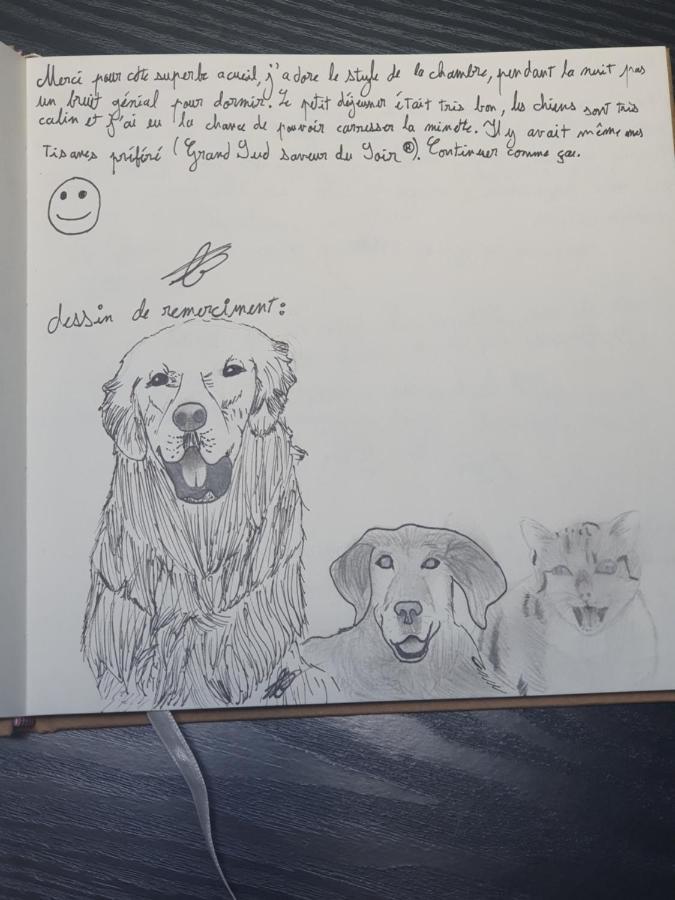 Merci pour cóte superbe acueil, j'adore le style de la chambre, pendant la nuit pas
un bruit génial pour dormir. Le petit déjeuner était très bon, les chiens sont très
calin et j'ai eu la chance de pouvoir carresser la minette. Il y avait même mes
Tisanes préféré (Grand Sud saveur du Soir®). Continuer comme ça.
dessin de remerciment: